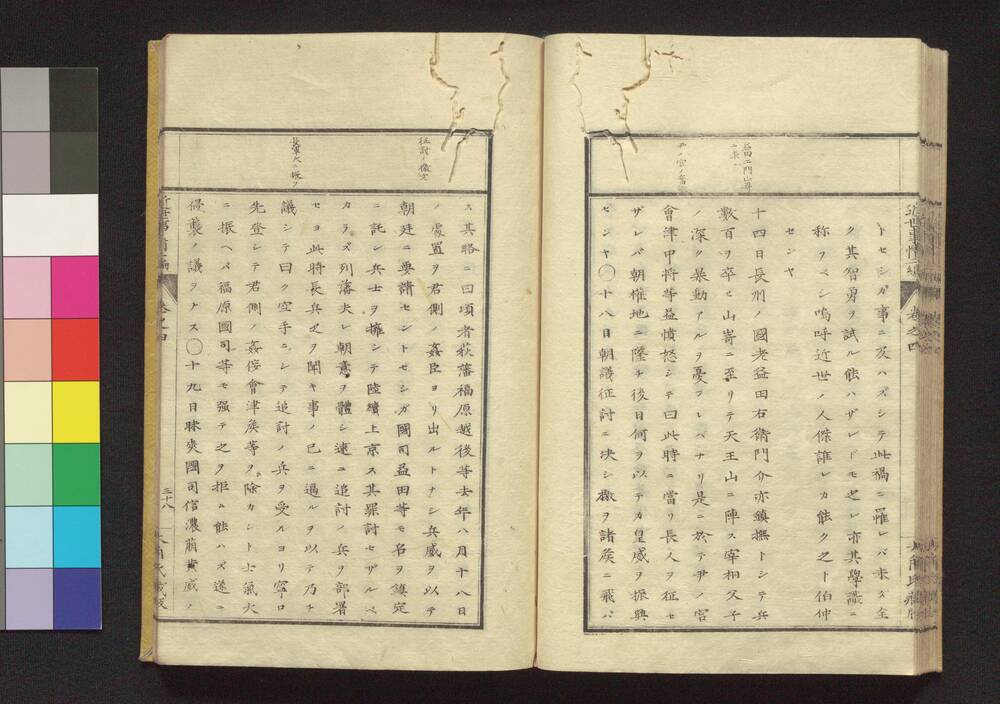 トセシガ事ニ及ハズシテ此禍ニ罹レバ未タ全
ク其智勇ヲ試ル能ハザレドモ之レ亦其學識ニ
称フベシ嗚呼近世ノ人傑誰レカ能ク之ト伯仲
センヤ
十四日長州ノ國老益田右衛門介亦鎮撫トシテ兵
數百ヲ卒ヒ山嵜ニ至リテ天王山ニ陣ス宰相父子
ノ深ク暴動アルヲ憂フレハナリ是ニ於テ尹ノ宮
會津中将等益憤怒シテ曰此時ニ當リ長人ヲ征セ
ザレバ朝権地ニ墜チ後日何ヲ以テカ皇威ヲ振興
センヤ○十八日朝議征討ニ决シ檄ヲ諸矦ニ飛バ
近世事情二編 巻之四
征討ノ檄文
長軍大ニ振フ
ス其略ニ曰頃者萩藩福原越後等去年八月十八日
ノ處置ヲ君側ノ姦臣ヨリ出ルトナシ兵威ヲ以テ
朝廷ニ要請セントセシガ國司益田等モ名ヲ鎮定
ニ託シ兵士ヲ擁シテ陸續上京ス其罪討セザルベ
カラズ列藩夫レ朝意ヲ體シ速ニ追討ノ兵ヲ部署
セヨ此時長兵之ヲ聞キ事ノ已ニ迫ルヲ以テ乃チ
議シテ曰ク空手ニシテ追討ノ兵ヲ受ルヨリ寧ロ
先登シテ君側ノ姦侫會津矦等ヲ除カント士氣大
ニ振ヘバ福原國司等モ强テ之ヲ拒ム能ハズ遂ニ
侵襲ノ議ヲナス○十九日昧爽國司信濃萠黄威ノ
巻之四
三十八